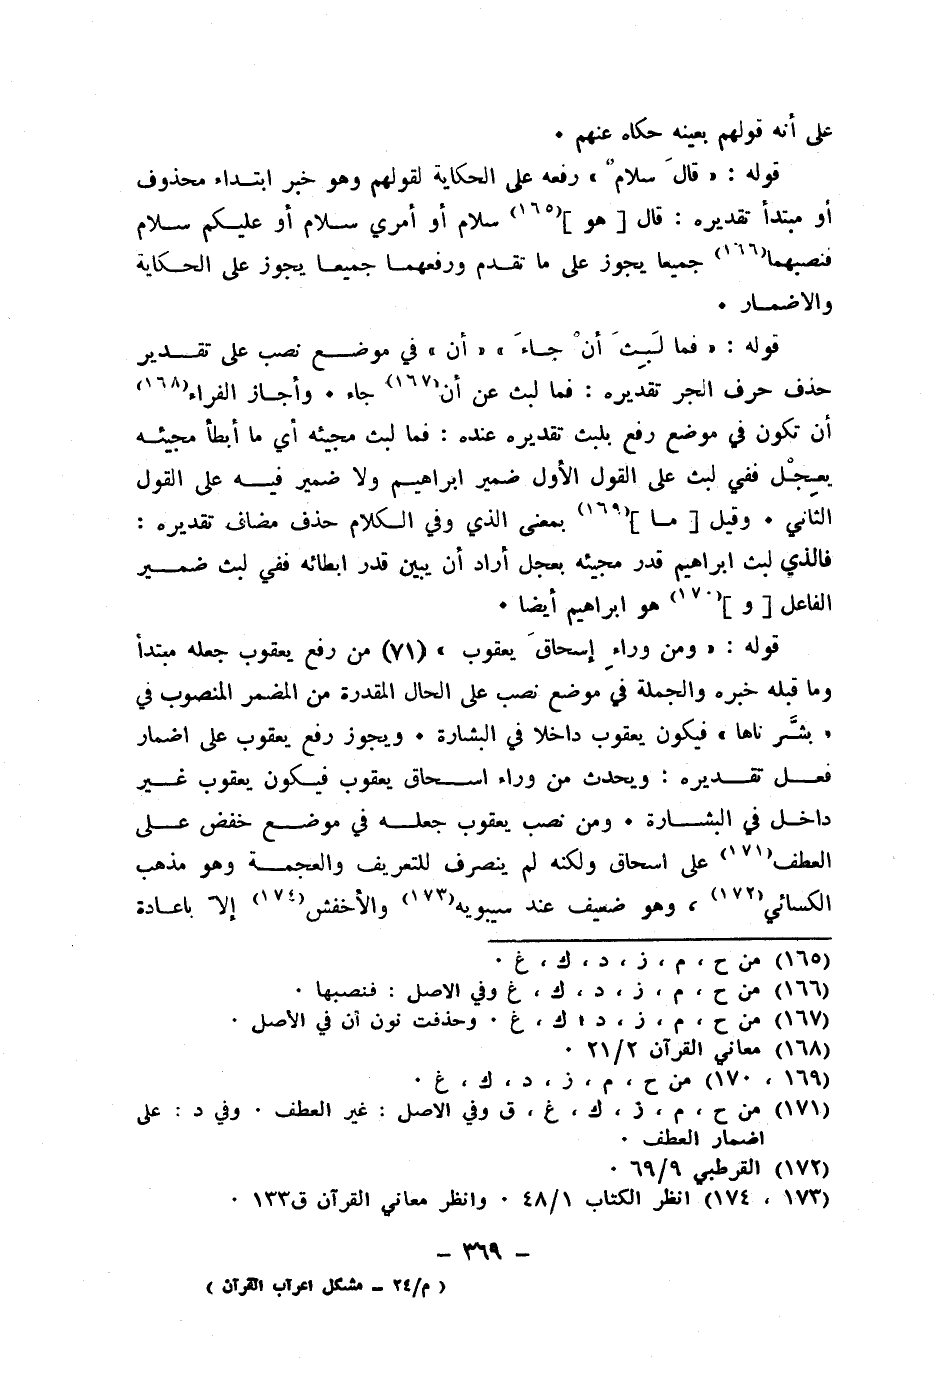 على أنه قولهم بعينه حكاه عنهم ٠
قوله : « قالَ سلامٌ » رفعه على الحكاية لقولهم وهو خبر ابتـداء محذوف
أو مبتدأ تقديره : قال [ هو ](١٦٥) سلام أو أمري ســلام أو عليـكم ســلام
فنصبهما(١٦٦) جميعا يجوز على ما تقـدم ورفعهمـا جميعـا يجوز على الحـكاية
والاضمـار ٠
قوله : « فما لَبِثَ أنْ جـاءَ » « أن » في موضــع نصب على تقــدير
حذف حرف الجر تقديره : فما لبث عن أن(١٦٧) جاء ٠ وأجـاز الفراء(١٦٨)
أن تكون في موضع رفع بلبث تقديره عنده : فما لبث مجيئه أي ما أبطأ مجيئـه
بعِجْل ففي لبث على القول الأول ضمير ابراهيـم ولا ضمير فيــه على القول
الثاني ٠ وقيل [ مـا ](١٦٩) بمعنى الذي وفي الـكلام حذف مضاف تقديره :
فالذي لبث ابراهيم قدر مجيئه بعجل أراد أن يبين قدر ابطائه ففي لبث ضمــير
الفاعل [ و ](١٧٠) هو ابراهيم أيضا ٠
قوله : « ومن وراءِ إسحاقَ يعقوب » (٧١) من رفع يعقوب جعله مبتدأ
وما قبله خبره والجملة في موضع نصب على الحال المقدرة من المضمر المنصوب في
« بشَّر ناها » فيكون يعقوب داخلا في البشارة ٠ ويجوز رفع يعقوب على اضمار
فعــل تقــديره : ويحدث من وراء اســحاق يعقوب فيـكون يعقوب غــير
داخـل في البشــارة ٠ ومن نصب يعقوب جعلــه في موضــع خفض عــلى
العطف(١٧١) على اسحاق ولكنه لم ينصرف للتعريف والعجمــة وهو مذهب
الكسائي(١٧٢) ، وهو ضعيف عند سيبويه(١٧٣) والأخفش(١٧٤) إلا باعـادة
(١٦٥) من ح ، م ، ز ، د ، ك ، غ ٠
(١٦٦) من ح ، م ، ز ، د ، ك ، غ وفي الاصل : فنصبها ٠
(١٦٧) من ح ، م ، ز ، د ، ك ، غ ٠ وحذفت نون أن في الأصل ٠
(١٦٨) معاني القرآن ٢١/٢ ٠
(١٦٩ ، ١٧٠) من ح ، م ، ز ، د ، ك ، غ ٠
(١٧١) من ح ، م ، ز ، ك ، غ ، ق وفي الاصل : غير العطف ٠ وفي د : على
اضمار العطف ٠
(١٧٢) القرطبي ٦٩/٩ ٠
(١٧٣ ، ١٧٤) انظر الكتاب ٤٨/١ ٠ وانظر معاني القرآن ق١٣٣ ٠
– ٣٦٩ –
( م/٢٤ – مشكل اعراب القرآن )